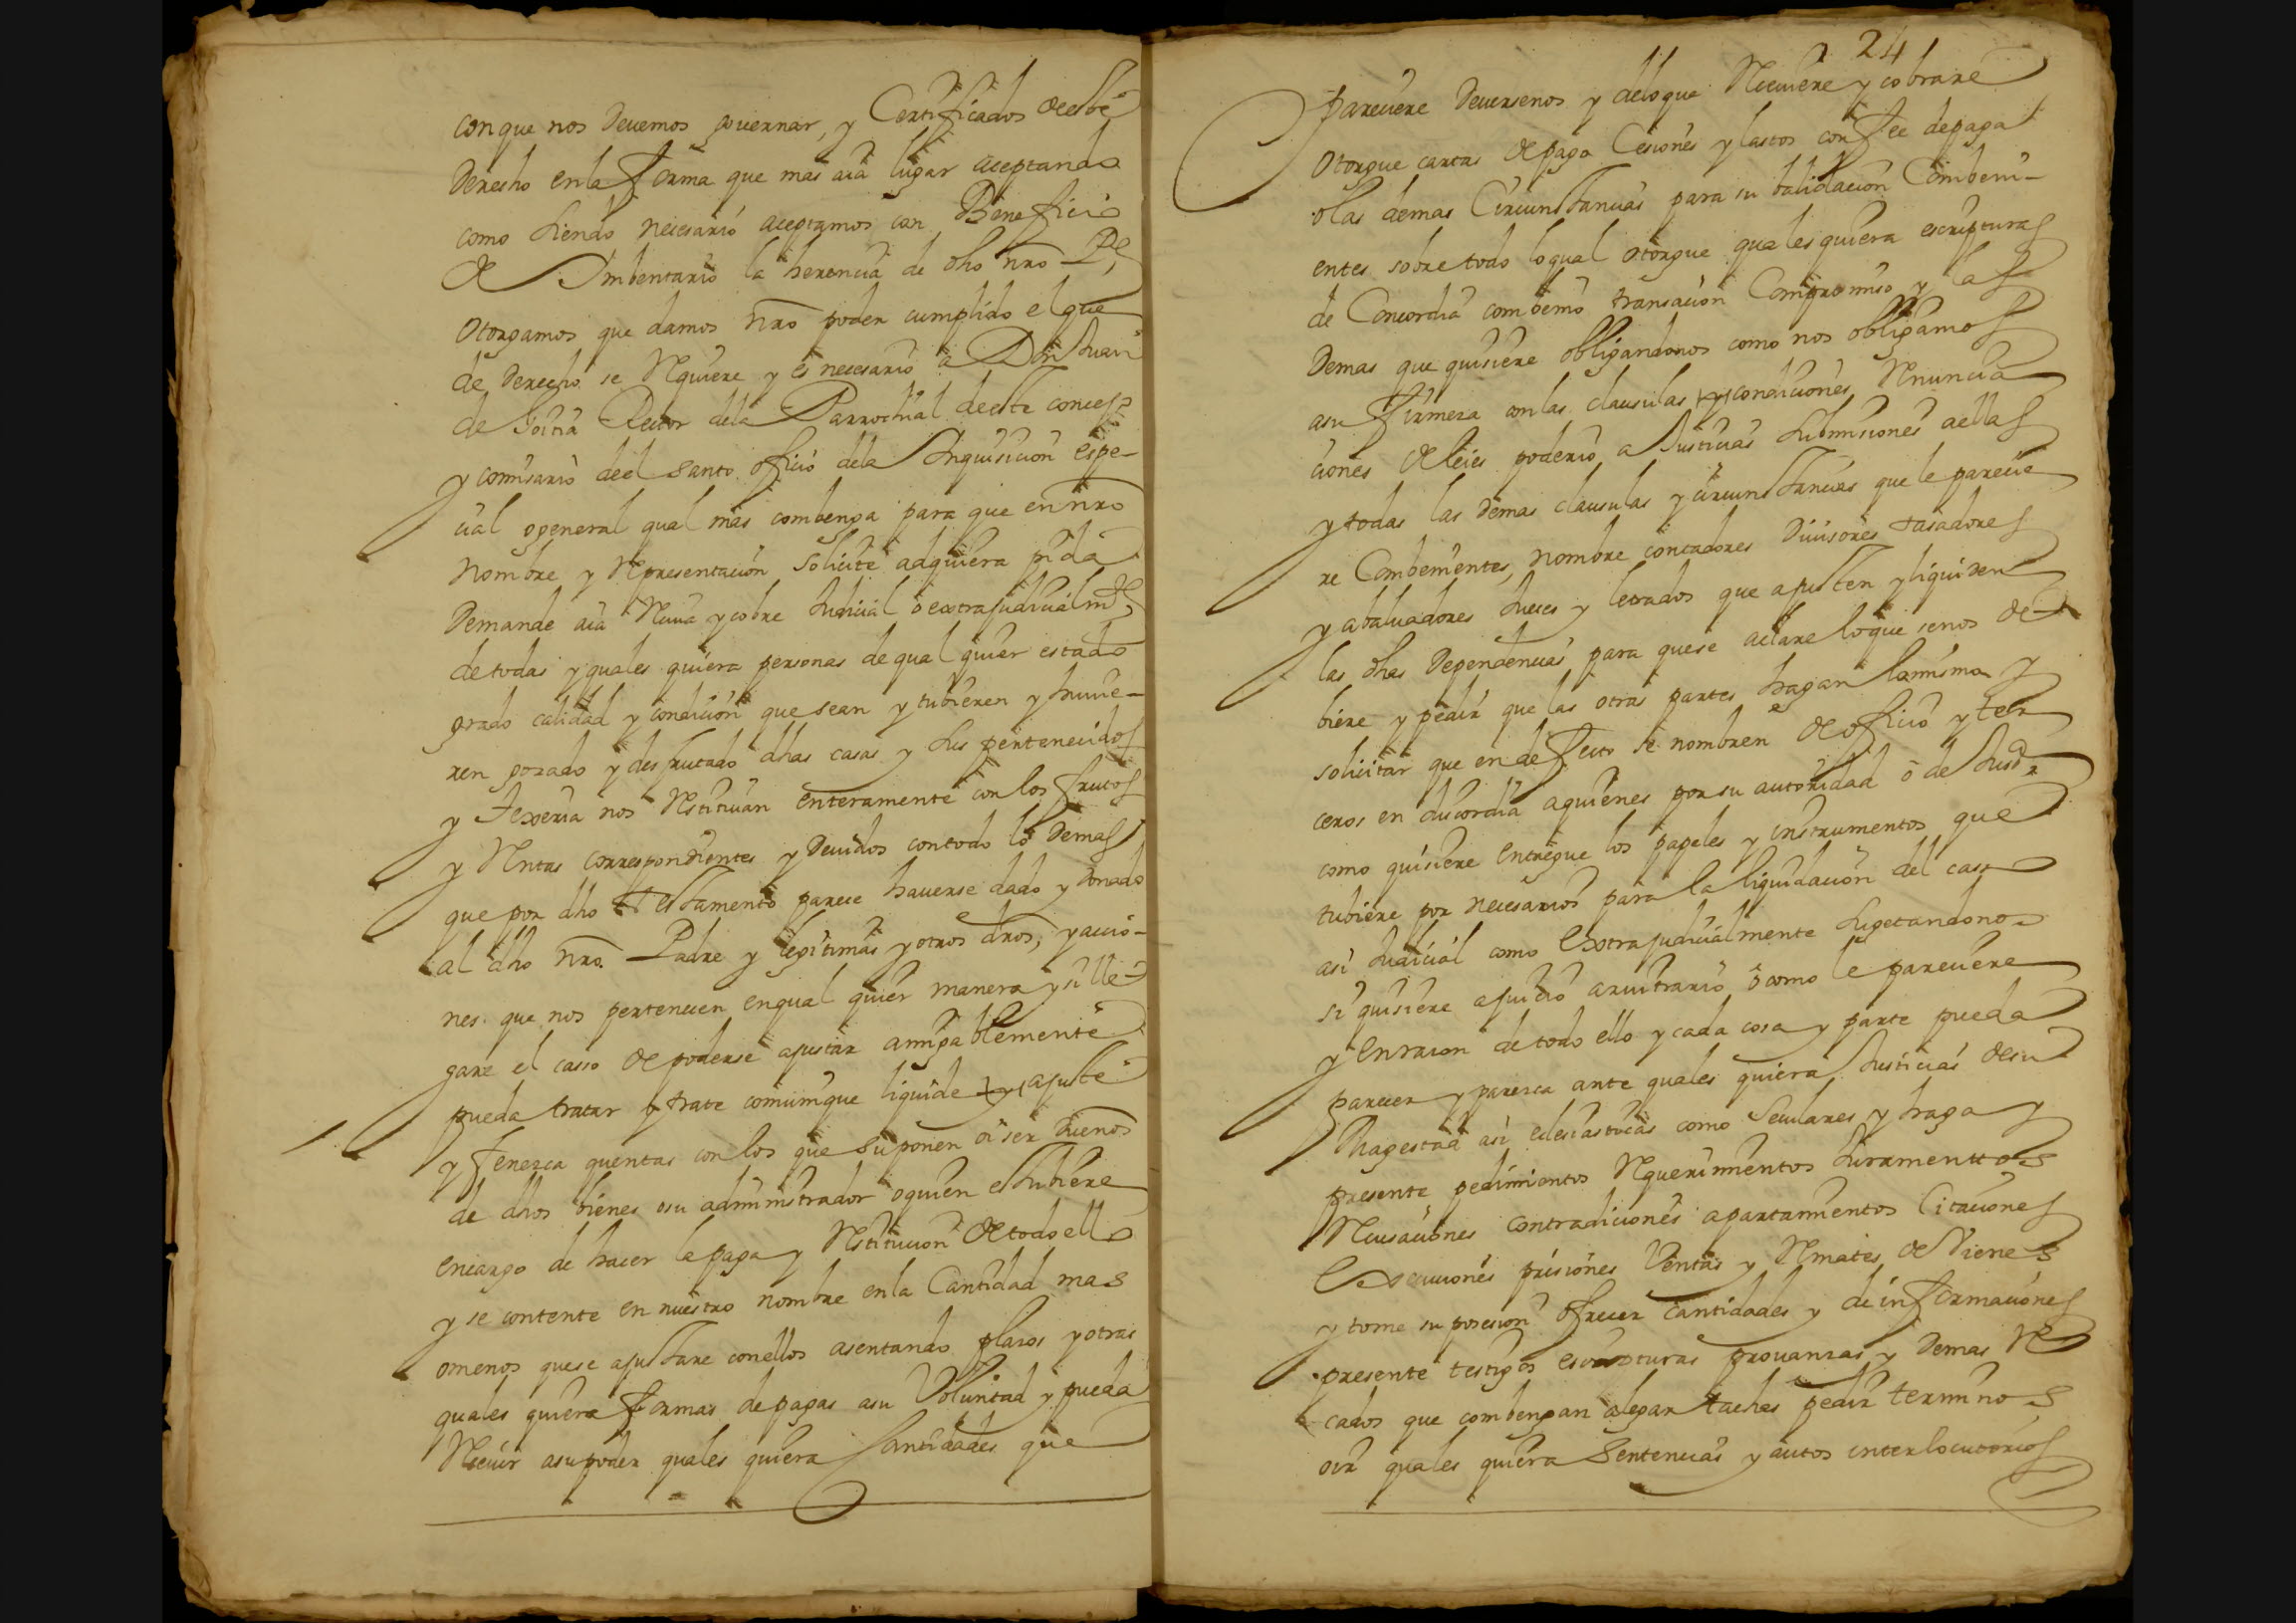 con que nos Devemos governar, y Certificados de este
Derecho en la forma que mas aia lugar aceptando
como siendo necesario aceptamos con Beneficio
de Imbentario la herencia de dho nro Pe,
otorgamos que damos nro poder cumplido el que
de Derecho se Requiere y es necesario a Don Juan
de Goitia Retor de la Parrochial de este concejo
y comisario de el santo oficio de la Inquisicion espe-
cial o general qual mas combenga para que en nro
nombre y Representacion solicite adquiera pida
Demande aia Reciva y cobre Judicial o extrajudicialmte,
de todas y quales quiera personas de qual quier estado
grado calidad y condicion que sean y tubieren y huvie-
ren gozado y desfrutado dhas casas y sus pertenecidos
y Jexeria nos Restituian enteramente con los frutos
y Rentas correspondientes y Devidos con todo lo Demas
que por dho Testamento parece haverse dado y Donado
al dho nro. Padre y legitimas y otros dros, y accio-
nes. que nos pertenecen en qual quier manera y si lle
gare el casso de poderse ajustar amigablemente
pueda tratar y trate comunique liquide y ajuste
y fenezca quentas con los que suponen oi ser Duenos
de dhos bienes o su administrador o quien estubiere
encargo de hacer la paga y Restitucion de todo ello
y se contente en nuestro nombre en la Cantidad mas
o menos que se ajustare con ellos asentando plazos y otras
quales quiera formas de pagas a su Voluntad y pueda
Recivir a su poder quales quiera Cantidades que
24
pareciere Deversenos y de lo que Reciviere y cobrare
otorgue cartas de pago Cesiones y lastos con fee de paga
o las demas Circunstancias para su balidacion Combeni-
entes sobre todo lo qual otorgue quales quiera escripturas
de Concordia combenio transacion Compromiso y las
Demas que quisiere obligandonos como nos obligamos
a su firmeza con las clausulas y condiciones Renuncia
ciones de leies poderio a Justicias submisiones a ellas
y todas las Demas clausulas y circunstancias que le parecie
re Combenientes, nombre contadores Divisores tasadores
y abaluadores Jueces y letrados que ajusten y liquiden
las dhas Dependencias para que se aclare lo que se nos de
biere y pedir que las otras partes hagan lo mismo y
solicitar que en defecto se nombren de oficio y ter
ceros en discordia a quienes por su autoridad o de Jusa
como quisiere entregue los papeles y instrumentos que
tubiere por necesarios para la liquidacion del caso
asi Judicial como extrajudicialmente sugetandonos
si quisiere a juicio arvitrario o como le pareciere
y en razon de todo ello y cada cosa y parte pueda
parecer y parezca ante quales quiera Justicias de su
Magestad asi eclesiasticas como Seculares y haga y
presente pedimientos Requerimientos Juramenttos
Recusaciones contradiciones apartamientos Citaciones
Execuciones prisiones Ventas y Remates de Vienes
y tome su posesion ofrecer cantidades y de informaciones
presente testigos escripturas provanzas y Demas Re
cados que combengan alegar tachas pedir terminos
oir quales quiera Sentencias y autos interlocutorios